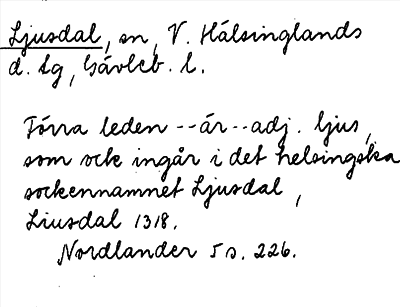 Ljusdal, sn, V. Hälsinglands
d. tg, Gävleb. l.
Förra leden -- är -- adj. ljus,
som ock ingår i det helsingska
sockennamnet Ljusdal,
Liusdal 1318.
Nordlander 5 s. 226.